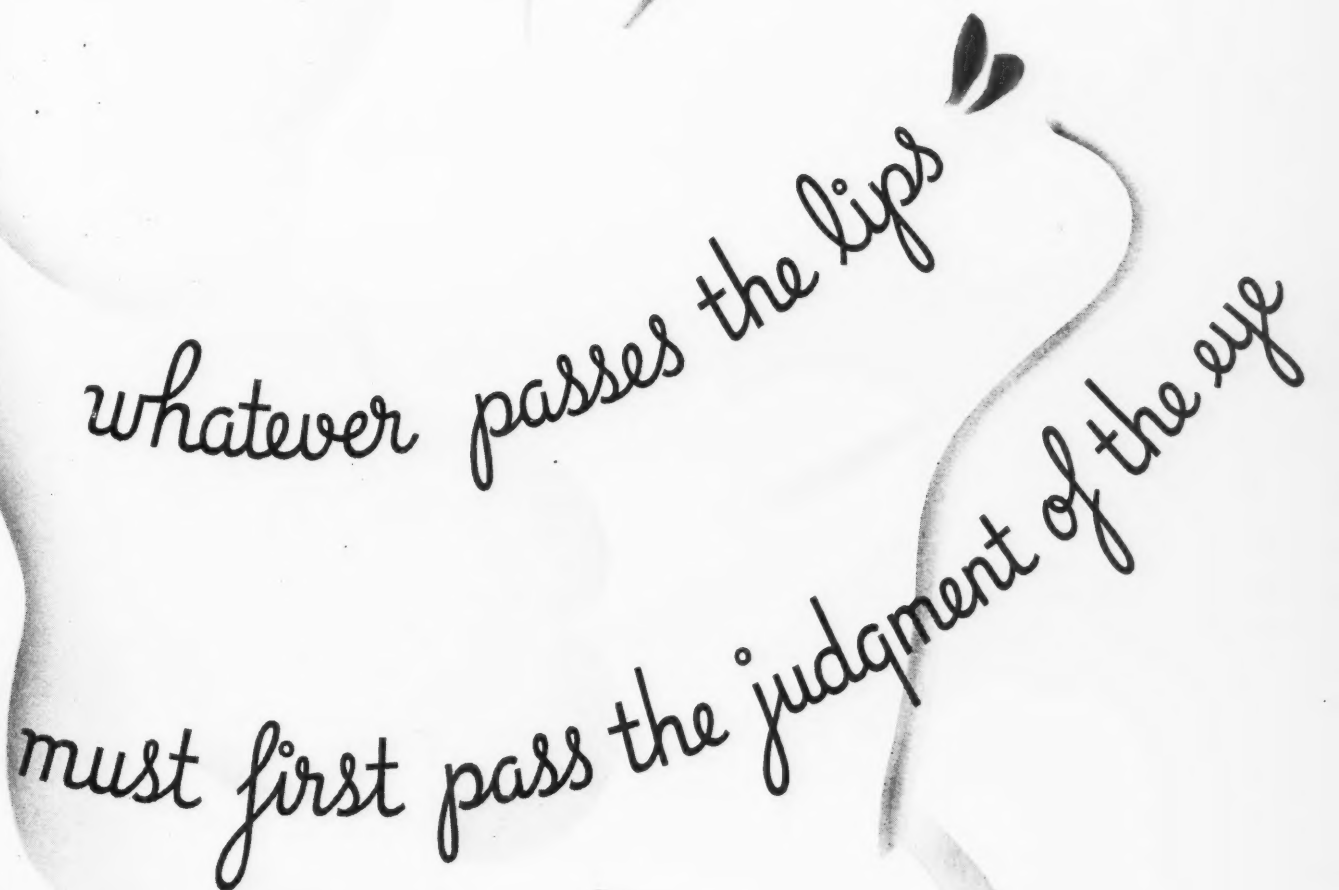 whatever passes the lips
must first pass the judgment of the eye